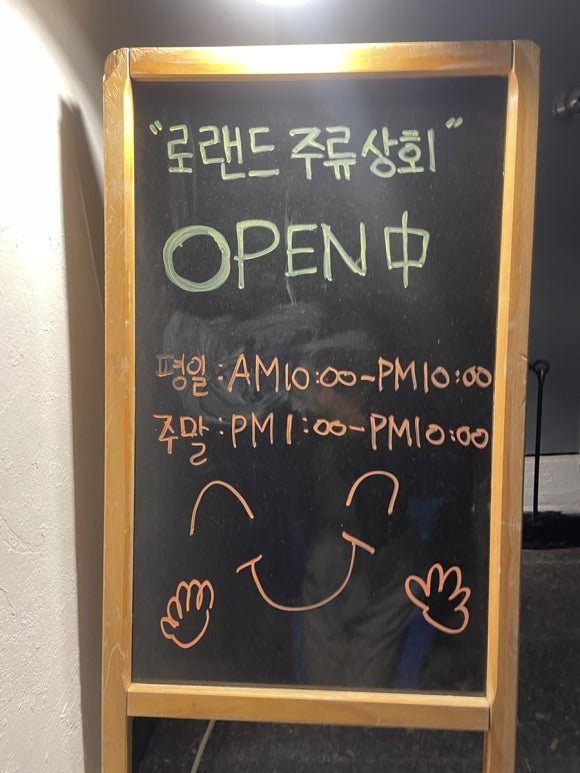 "로랜드 주류상회"
OPEN 中
평일 : AM10:00-PM10:00
주말 : PM1:00-PM10:00